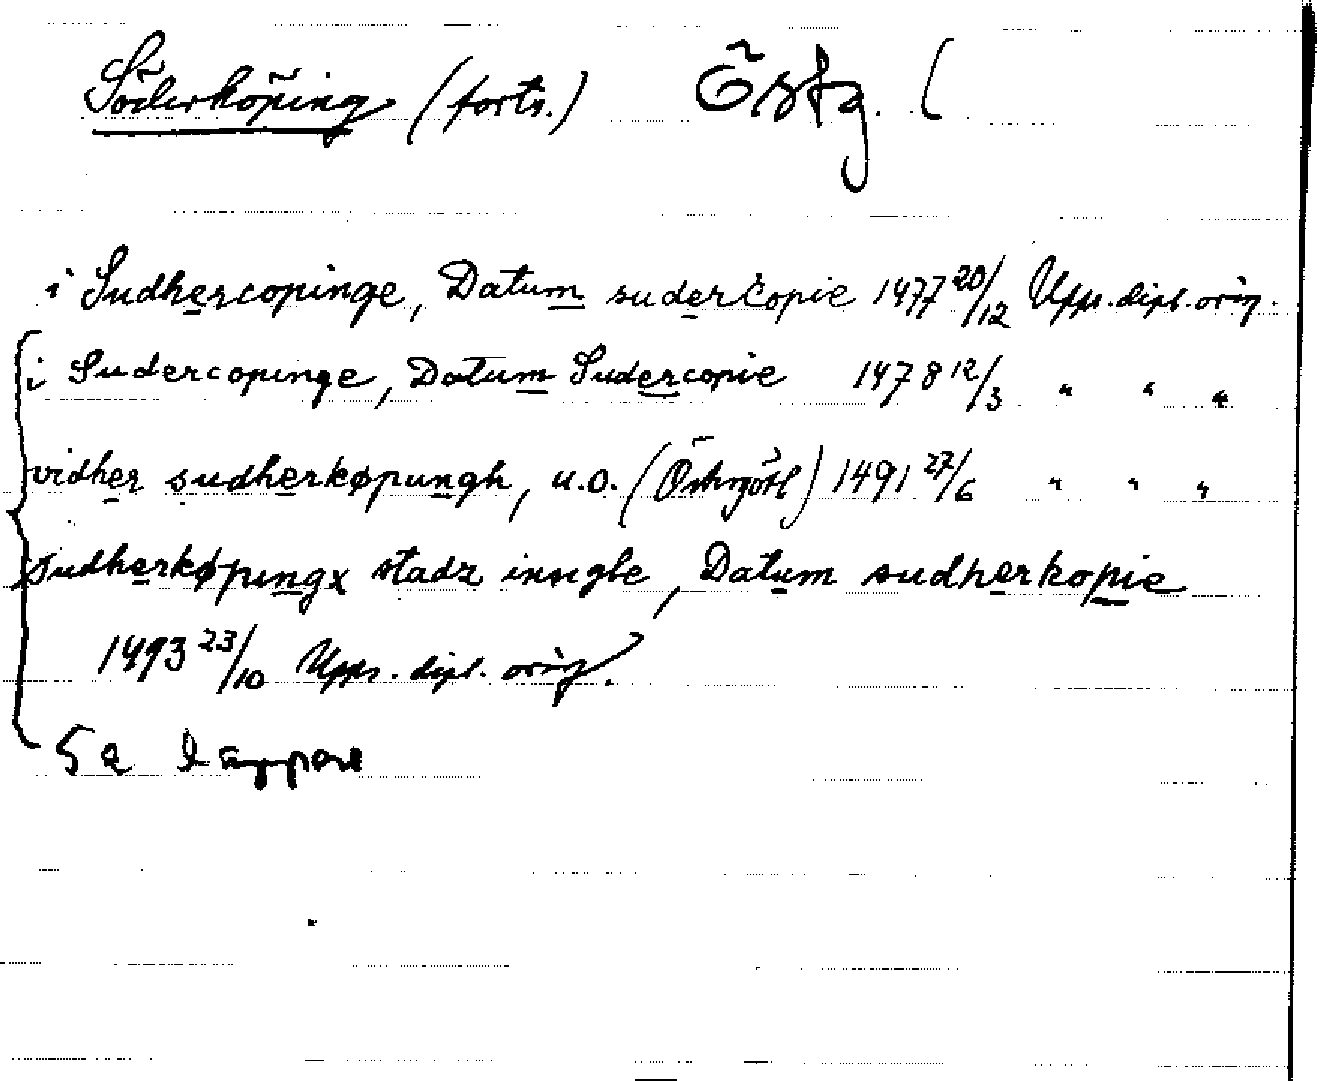 Söderköping (forts.) Östg. (
i Sudhercopinge, Datum suderkopie 1477 20/12 Upps. dipl. orig.
i Sudercopinge, Datum Sudercopie 1478 12/3 " " "
vidher sudherkøpungh, u.o. (Östergötl) 1491 27/6 " " "
Sudherkøpingx stadz insigle, Datum sudherkopie
1493 23/10 Upps. dipl. orig.
5a lappen